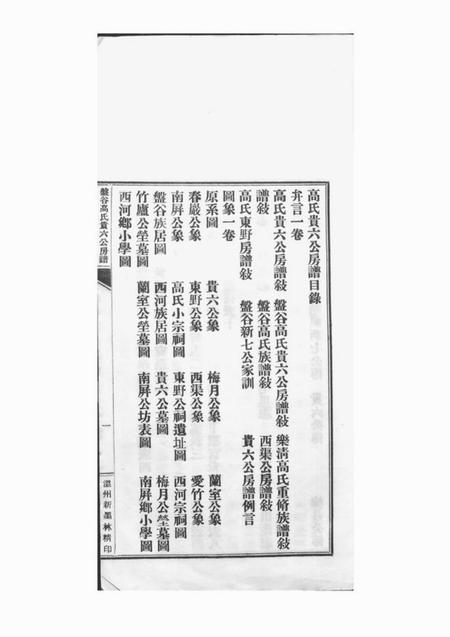 高氏貴六公房譜目錄
弁言一卷
高氏貴六公房譜敍 盤谷高氏貴六公房譜敍 樂清高氏重脩族譜敍
譜敍 盤谷高氏族譜敍 西渠公房譜敍
高氏東野房譜敍 盤谷新七公家訓 貴六公房譜例言
圖象一卷
原系圖 貴六公象 梅月公象 蘭室公象
春巖公象 東野公象 西渠公象 愛竹公象
南屏公象 高氏小宗祠圖 東野公祠遺址圖 西河宗祠圖
盤谷族居圖 西河族居圖 貴六公墓圖 梅月公塋墓圖
竹廬公塋墓圖 蘭室公塋墓圖 南屏公坊表圖 南屏鄉小學圖
西河鄉小學圖
盤谷高氏貴六公房譜
一
溫州新墨林精印